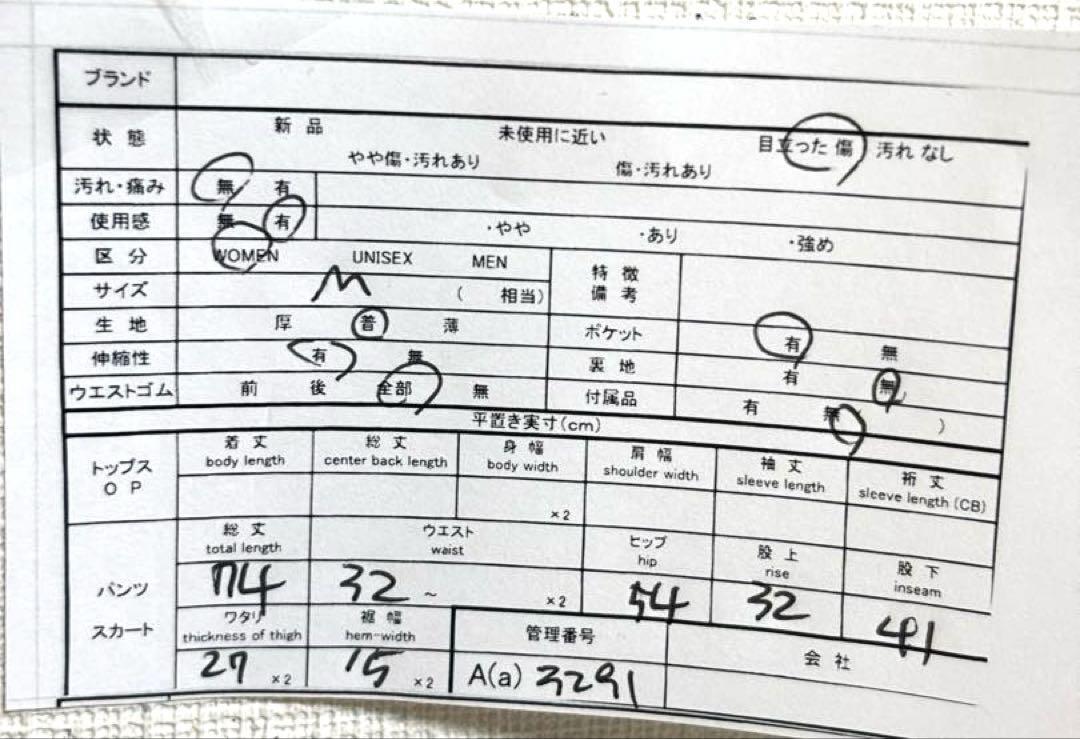 ブランド
状態 新品 未使用に近い 目立った傷 汚れなし
やや傷・汚れあり 傷・汚れあり
汚れ・痛み 無 有
使用感 無 有 ・やや ・あり ・強め
区分 WOMEN UNISEX MEN 特徴備考
サイズ M ( 相当)
生地 厚 普 薄 ポケット 有 無
伸縮性 有 無 裏地 有 無
ウエストゴム 前 後 全部 無 付属品 有 無 )
平置き実寸(cm)
トップス OP 着丈 総丈 身幅 肩幅 袖丈 裄丈
body length center back length body width shoulder width sleeve length sleeve length (CB)
×2
パンツ スカート 総丈 ウエスト ヒップ 股上 股下
total length waist hip rise inseam
74 32 ~ ×2 54 32 41
ワタリ 裾幅 管理番号 会社
thickness of thigh hem-width
27 ×2 15 ×2 A(a) 3291